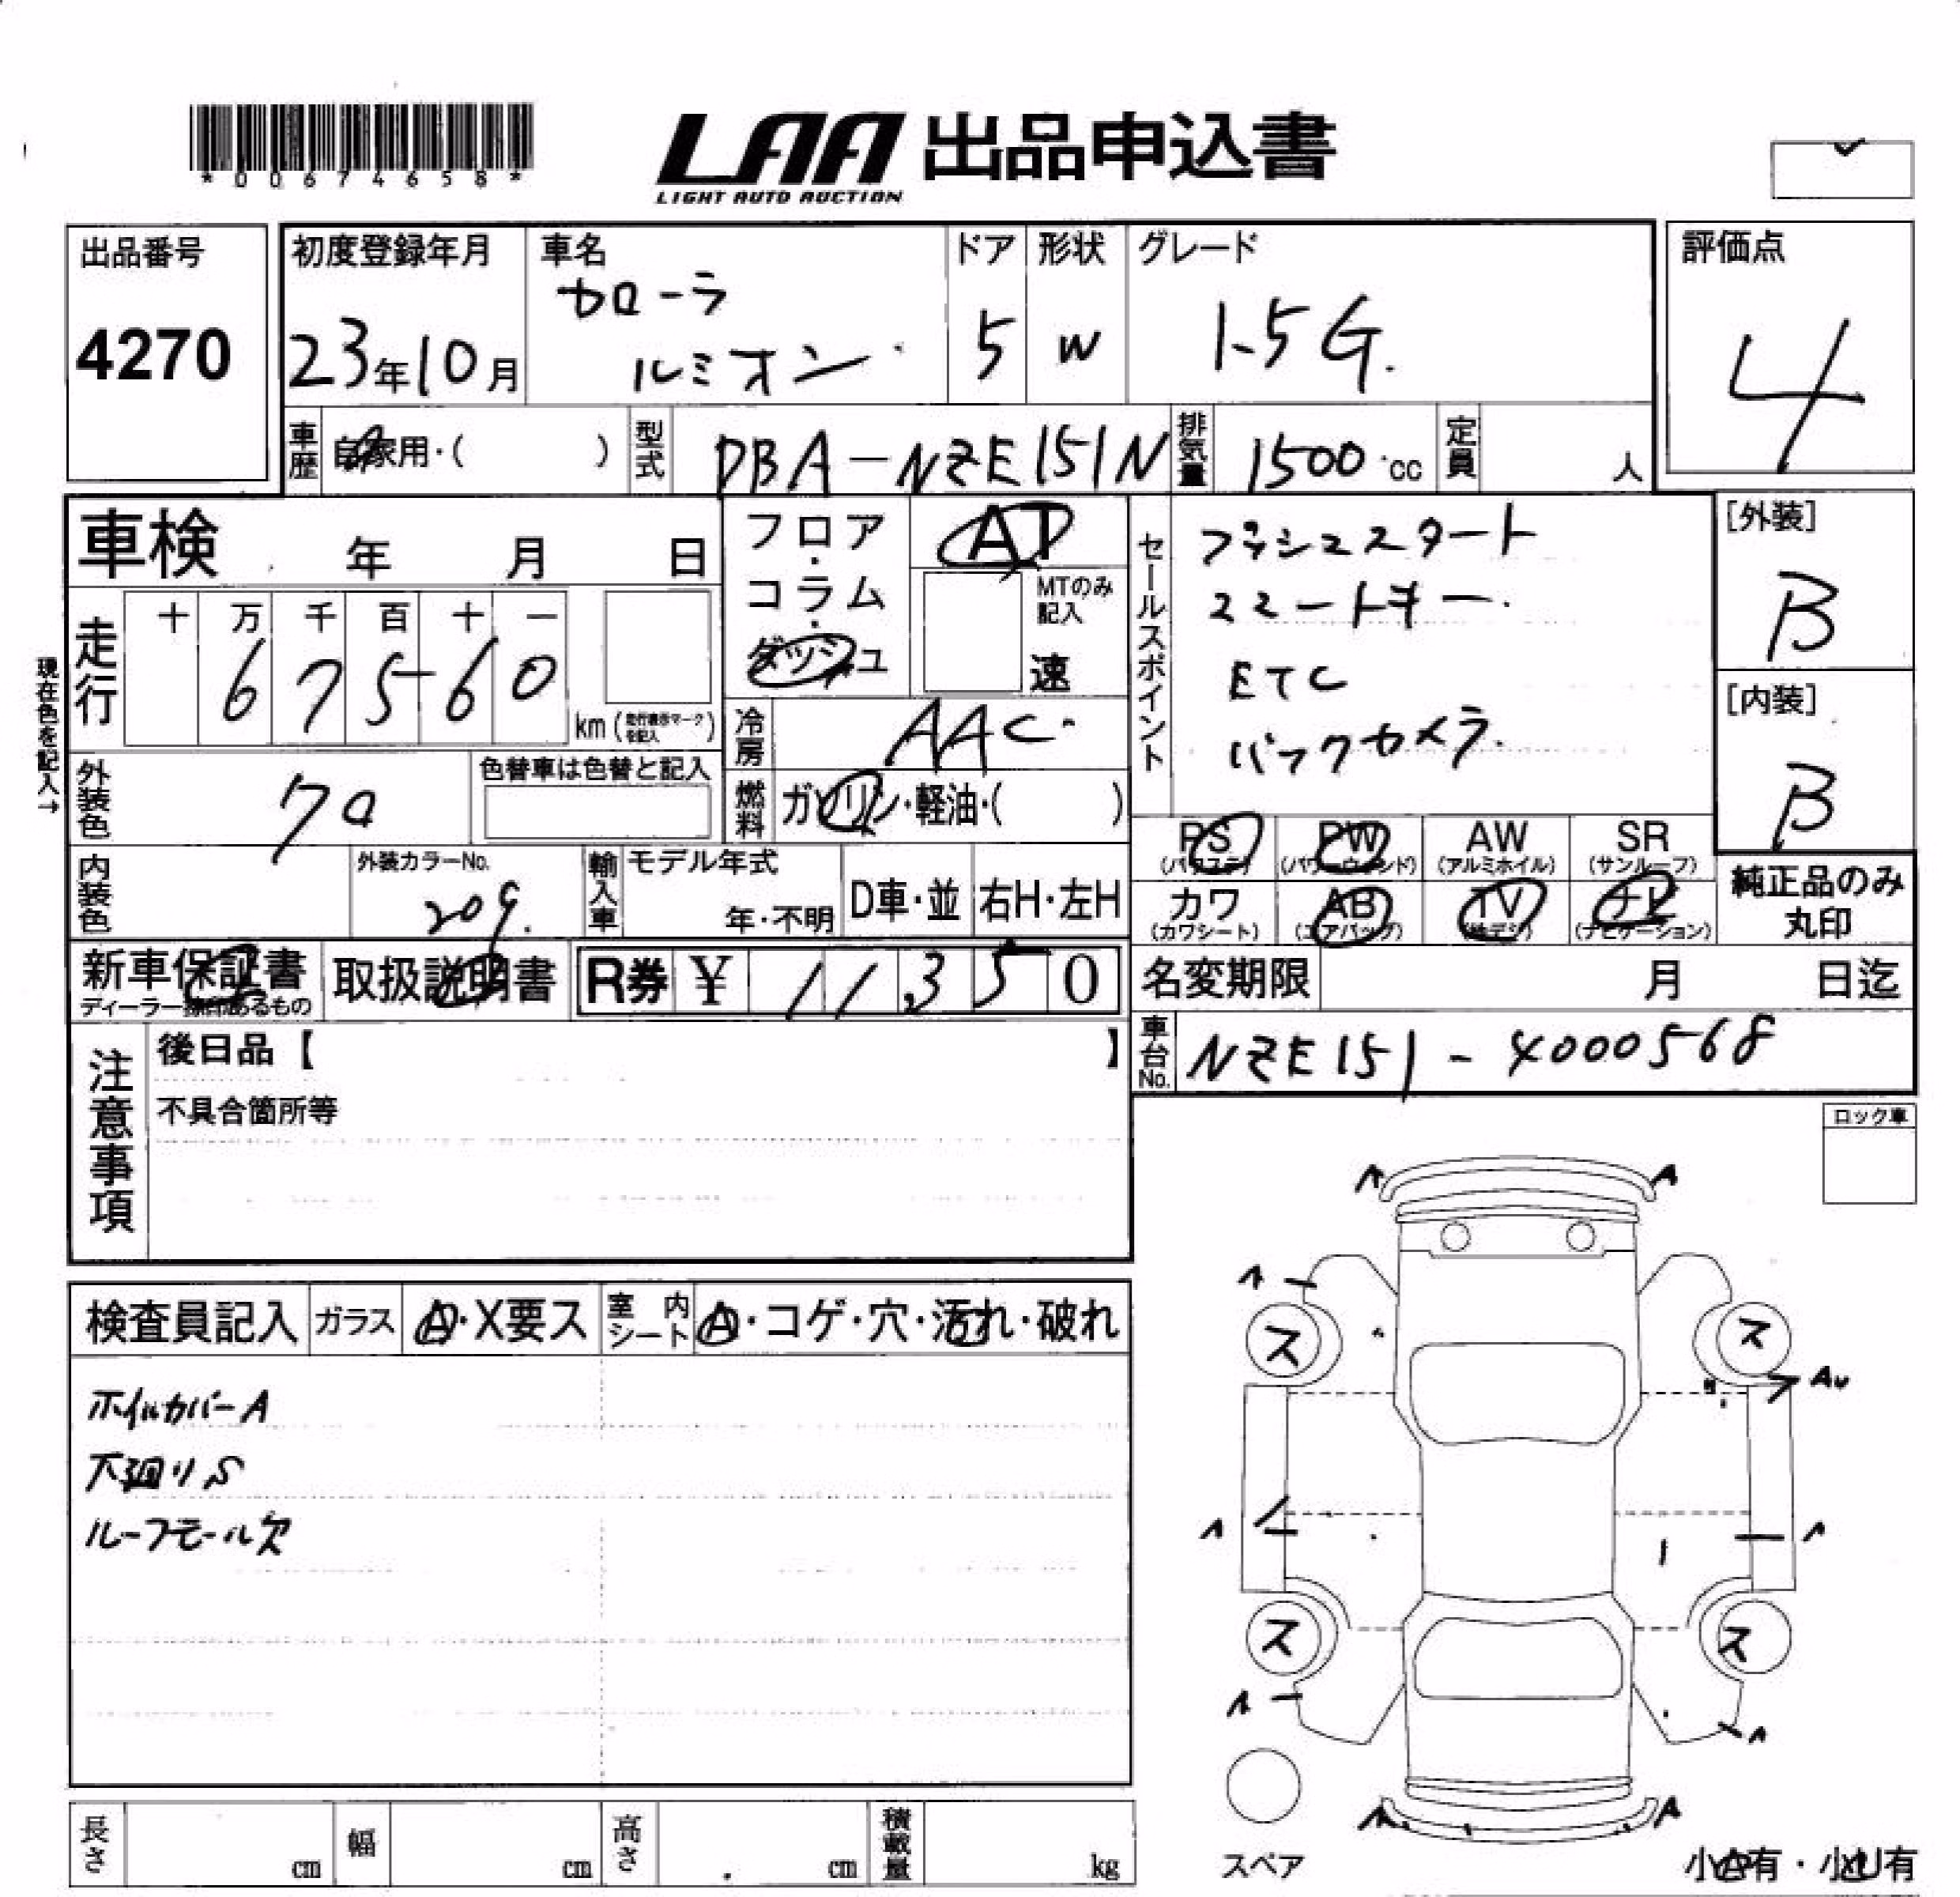 *00674658*
LAA 出品申込書
LIGHT AUTO AUCTION
出品番号
4270
初度登録年月
23年10月
車名
カローラ
ルミオン
ドア
5
形状
W
グレード
1.5G.
評価点
4
車歴
自家用・( )
型式
DBA-NZE151N
排気量
1500cc
定員
人
車検 年 月 日
フロア・コラム・ダッシュ
AT
MTのみ
記入
速
セールスポイント
プッシュスタート
スマートキー
ETC
バックカメラ.
[外装]
B
[内装]
B
現在色を記入→
走行
十 万 千 百 十 一
6 7 5 6 0
km (走行表示マークを記入)
冷房
AAC
外装色
クロ
色替車は色替と記入
燃料
ガソリン・軽油・( )
内装色
外装カラーNo.
209.
輸入車
モデル年式
年・不明
D車・並
右H・左H
PS
(パワステ)
PW
(パワーウィンド)
AW
(アルミホイル)
SR
(サンルーフ)
カワ
(カワシート)
AB
(エアバッグ)
TV
(地デジ)
ナビ
(ナビゲーション)
純正品のみ
丸印
新車保証書
ディーラー捺印あるもの
取扱説明書
R券 ¥ 11,350
名変期限 月 日迄
車台No.
NZE151-4000568
注意事項
後日品【 】
不具合箇所等
ロック車
検査員記入
ガラス
A・X要ス
室内
シート
A・コゲ・穴・汚れ・破れ
ホイルカバーA
下廻りS
ルーフモール欠
A A
A
ス ス
AU
A A
ス ス
A A
A A
スペア
小A有・小U有
長さ cm
幅 cm
高さ cm
積載量 kg